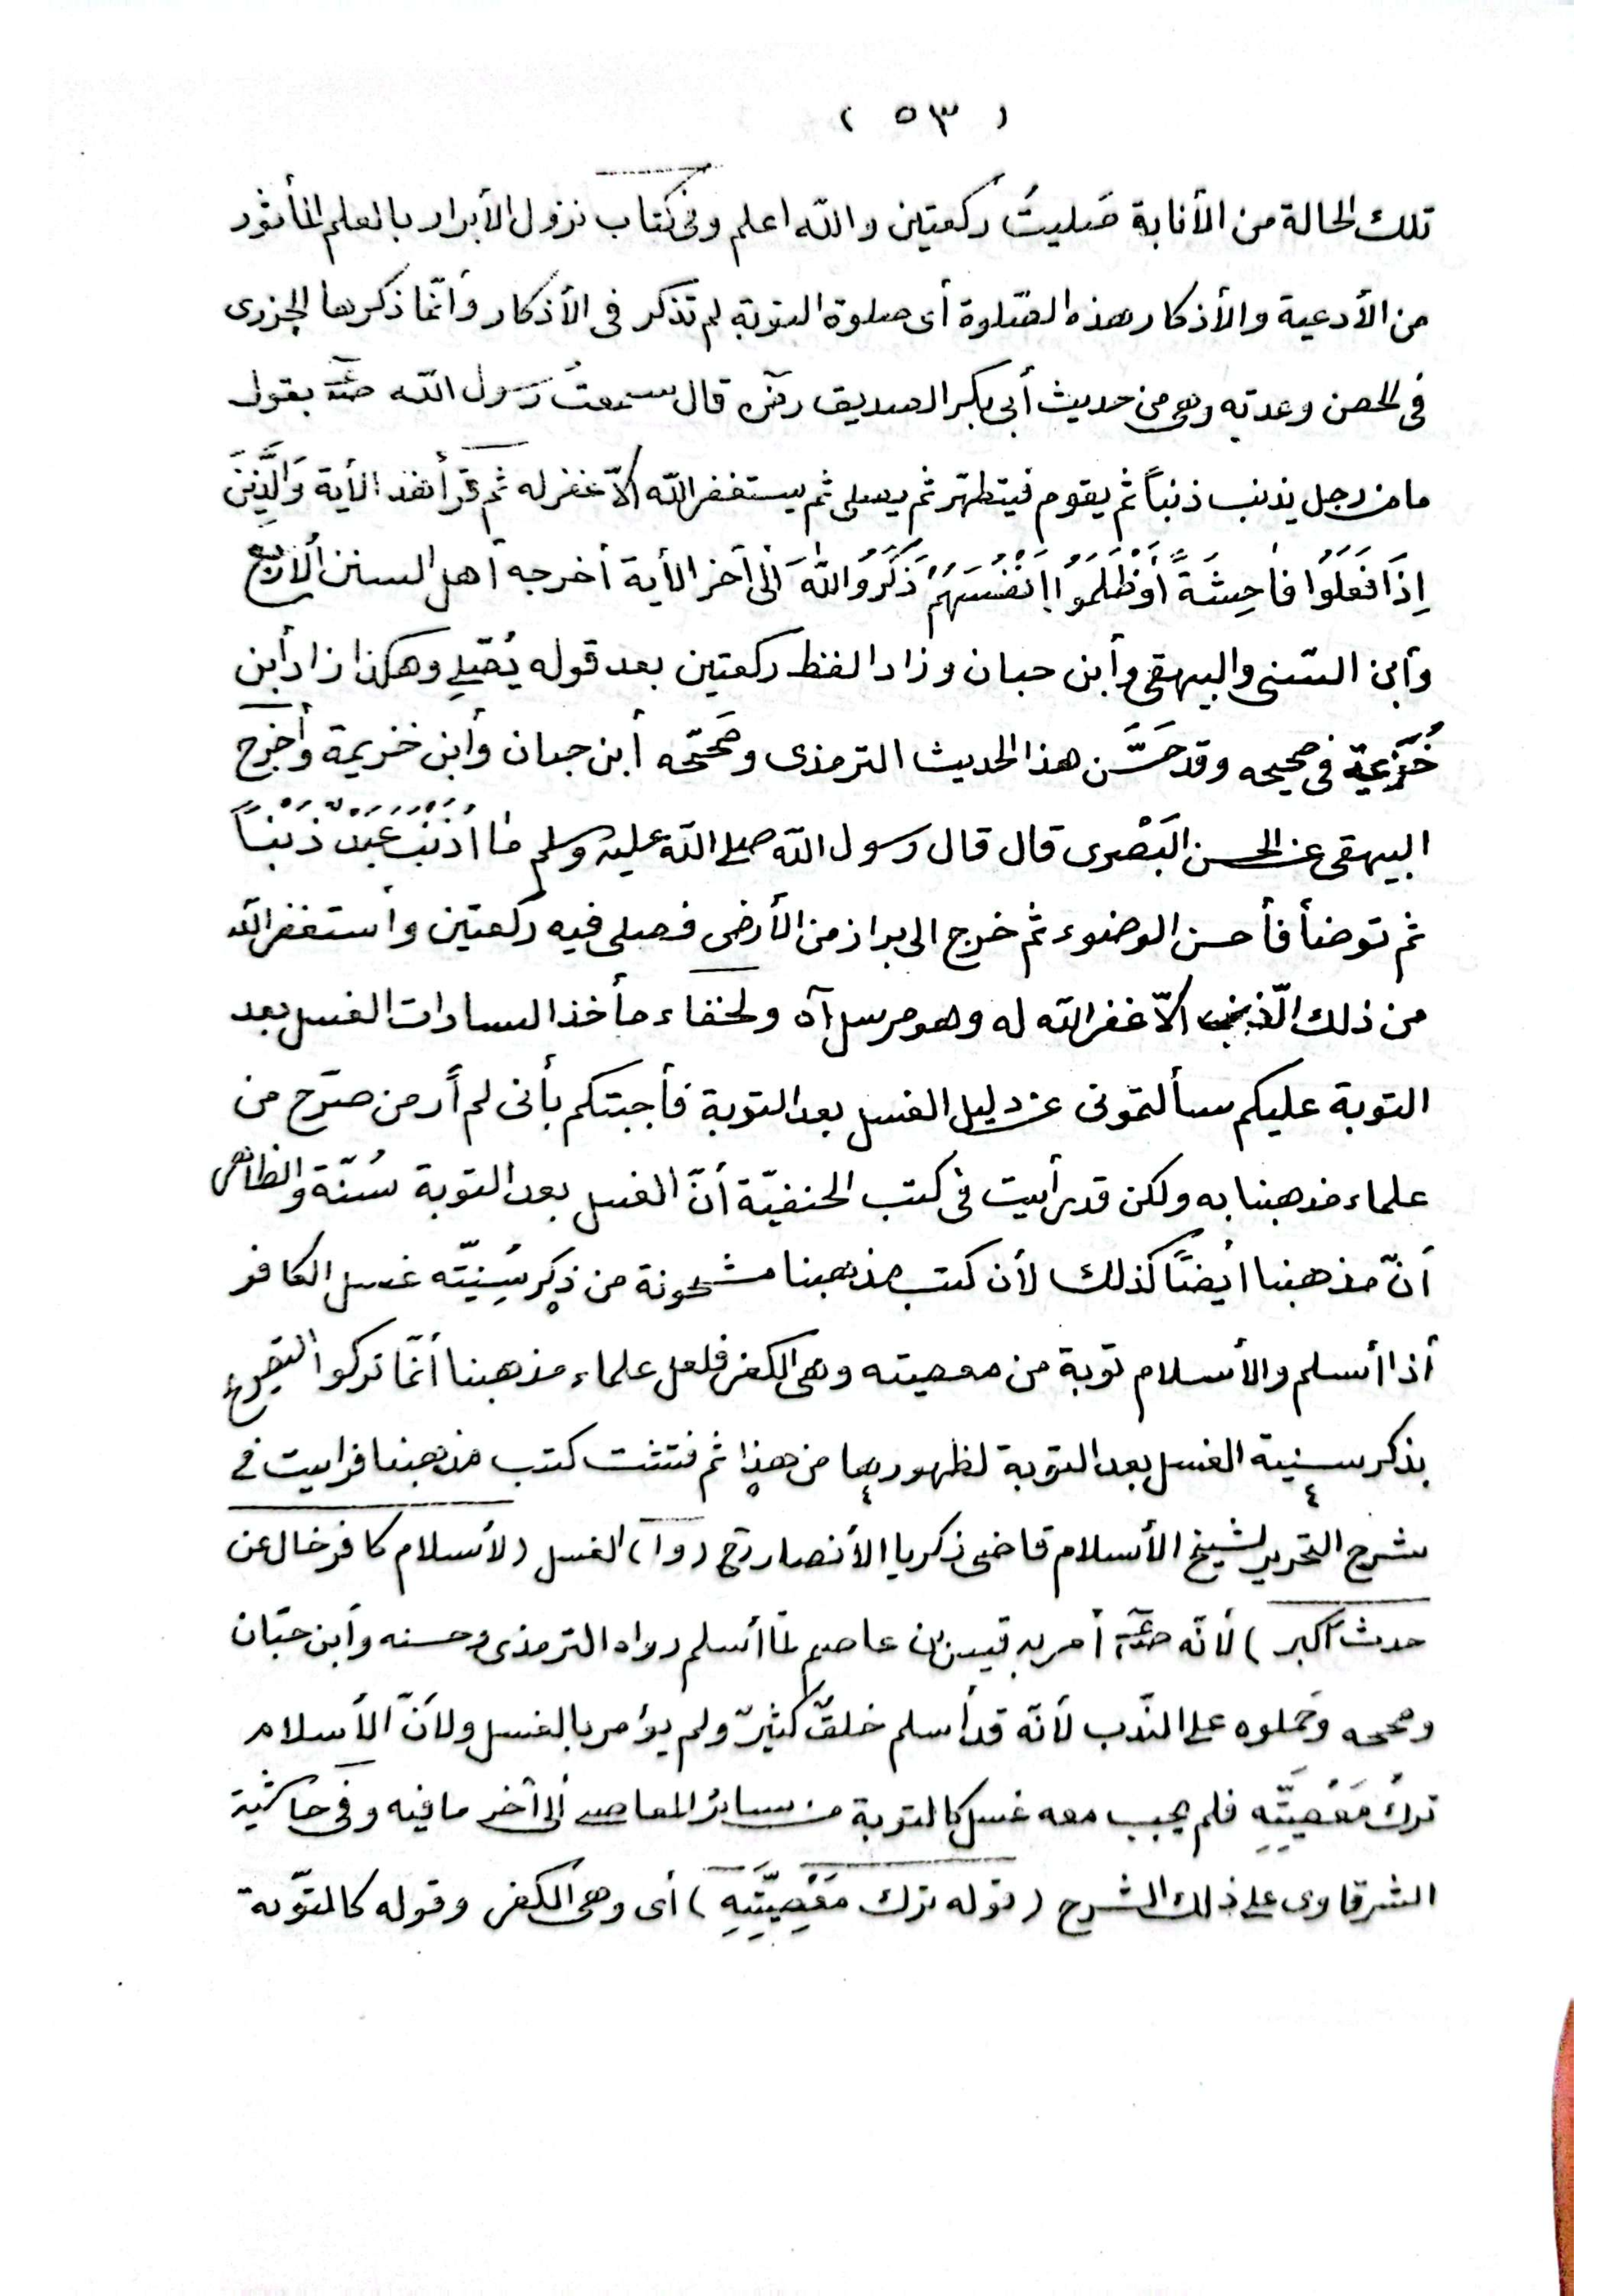 ( ٥٣ )
تلك الحالة من الأنابة صَليتُ ركعتين والله اعلم وفى كتاب نزول الأبرار بالعلم المأثور
من الأدعية والأذكار هذه الصّلوة أى صلوة التوبة لم تذكر فى الأذكار وأنّما ذكرها الجزرى
فى الحصن وعدته وهى من حديث أبى بكر الصديق رضى قال سمعتُ رسول الله صلعم يقول
ما من رجل يذنب ذنباً ثم يقوم فيتطهّر ثم يصلى ثم يستغفر الله الّا غفر له ثم قرأ هذه الأية وَالَّذِينَ
اِذَا فَعَلُوا فاحِشَةً أَوْ ظَلَمُوا اَنْفُسَهُمْ ذَكَرُوا اللهَ الى أخر الأية أخرجه أهل السنن ألاربع
وأبن السّنى والبيهقى وأبن حبان وزاد الفظ ركعتين بعد قوله يُصَلّي وهكذا زاد أبن
خُزَيمة فى صحيحه وقد حَسَّن هذا الحديث الترمذى وصَحّحه أبن حبان وأبن خزيمة وأخرج
البيهقى عن الحسن البَصْرى قال قال رسول الله صلى الله عليه وسلم مٰا أذْنَبَ عَبْدٌ ذَنْباً
ثم توضأ فأحسن الوضوء ثم خرج الى براز من الأرض فصلى فيه ركعتين وأستغفر الله
من ذلك الّذنب الّا غفر الله له وهو مرسل آه ولخفاء مأخذ السادات الغسل بعد
التوبة عليكم سألتمونى عن دليل الغسل بعد التوبة فأجبتكم بأنى لم أر من صرّح من
علماء مذهبنا به ولكن قد رأيت فى كتب الحنفيّة أنّ الغسل بعد التوبة سُنّة والظاهر
أنّ مذهبنا أيضًا كذلك لأن كتب مذهبنا مشحونة من ذِكر سُنِيّته غسل الكافر
أذا أسلم والأسلام توبة من معصيته وهى الكفر فلعل علماء مذهبنا أنّما تركوا التصريح
بذكر سنية الغسل بعد التوبة لظهورها من هذا ثم فتشت كتب مذهبنا فرايت فى
شرح التحرير لشيخ الأسلام قاضى زكريا الأنصارى (وا) الغسل (لأسلام كافر خال عن
حدث أكبر) لأنّه صلعم أمر به قيس بن عاصم لمّا أسلم رواه الترمذى وحسنه وأبن حبّان
وصححه وحَملوه على النّدب لأنّه قد أسلم خلقٌ كثيرٌ ولم يؤمر بالغسل ولأنّ الأسلام
تركُ مَعْصِيَّتِهِ فلم يجب معه غسل كالتوبة من سائر المعاصى ألى أخر ما فيه وفى حاشية
الشرقاوى على ذلك الشرح (قوله ترك مَعْصِيَّتِهِ) أى وهى الكفر وقوله كالتّوبة